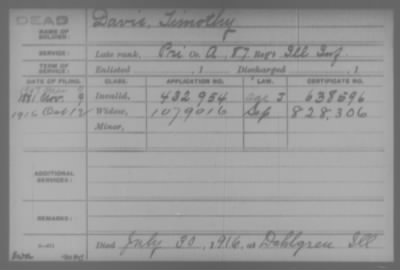 DEAD
NAME OF SOLDIER: Davis, Timothy
SERVICE: Late rank, Pri Co. A, 87 Reg't Ill Inf.
TERM OF SERVICE: Enlisted , 1 Discharged , 1
DATE OF FILING. CLASS. APPLICATION NO. LAW. CERTIFICATE NO.
1891 Nov. 9 Invalid, 432 954 638596
1916 Oct 12 Widow, 1079016 828,306
Minor,
ADDITIONAL SERVICES:
REMARKS:
Died July 30, 1916, at Dahlgren Ill